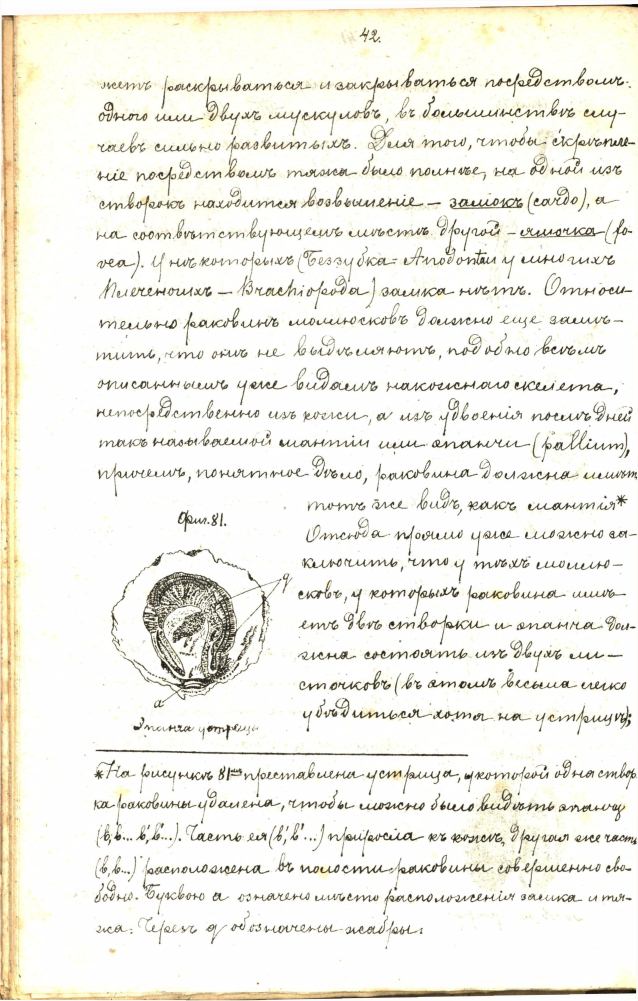 42.
жетъ раскрываться и закрываться посредствомъ
одного или двухъ мускуловъ, въ большинствѣ слу-
чаевъ сильно развитыхъ. Для того, чтобы скрѣпле-
ніе посредствомъ тяжа было полнѣе, на одной изъ
створокъ находится возвышеніе – замокъ (cardo), а
на соотвѣтствующемъ мѣстѣ другой – ямочка (fo-
vea). У нѣкоторыхъ (Беззубка = Anodonta и у многихъ
Плеченогихъ – Brachiopoda) замка нѣтъ. Относи-
тельно раковинъ моллюсковъ должно еще замѣ-
тить, что онѣ не выдѣляютъ, подобно всѣмъ
описаннымъ уже видамъ накожнаго скелета,
непосредственно изъ кожи, а изъ удвоенія послѣдней
такъ называемой мантіи или эпанчи (pallium),
причемъ, понятное дѣло, раковина должна имѣть
тотъ же видъ, какъ мантія*
Отсюда прямо уже можно за-
ключить, что у тѣхъ моллю-
сковъ, у которыхъ раковина имѣ-
етъ двѣ створки и эпанча дол-
жна состоять изъ двухъ ли-
сточковъ (въ этомъ весьма легко
убѣдиться хотя на устрицѣ);
Фиг. 81.
g
a
Эпанча устрицы
*На рисункѣ 81 преставлена устрица, у которой одна створ
ка раковины удалена, чтобы можно было видѣть эпанчу
(b, b... b', b'...). Часть ея (b', b'...) приросла къ кожѣ, другая же часть
(b, b...) расположена въ полости раковины совершенно сво-
бодно. Буквою а означено мѣсто расположенія замка и тя-
жа. Черезъ g обозначены жабры.